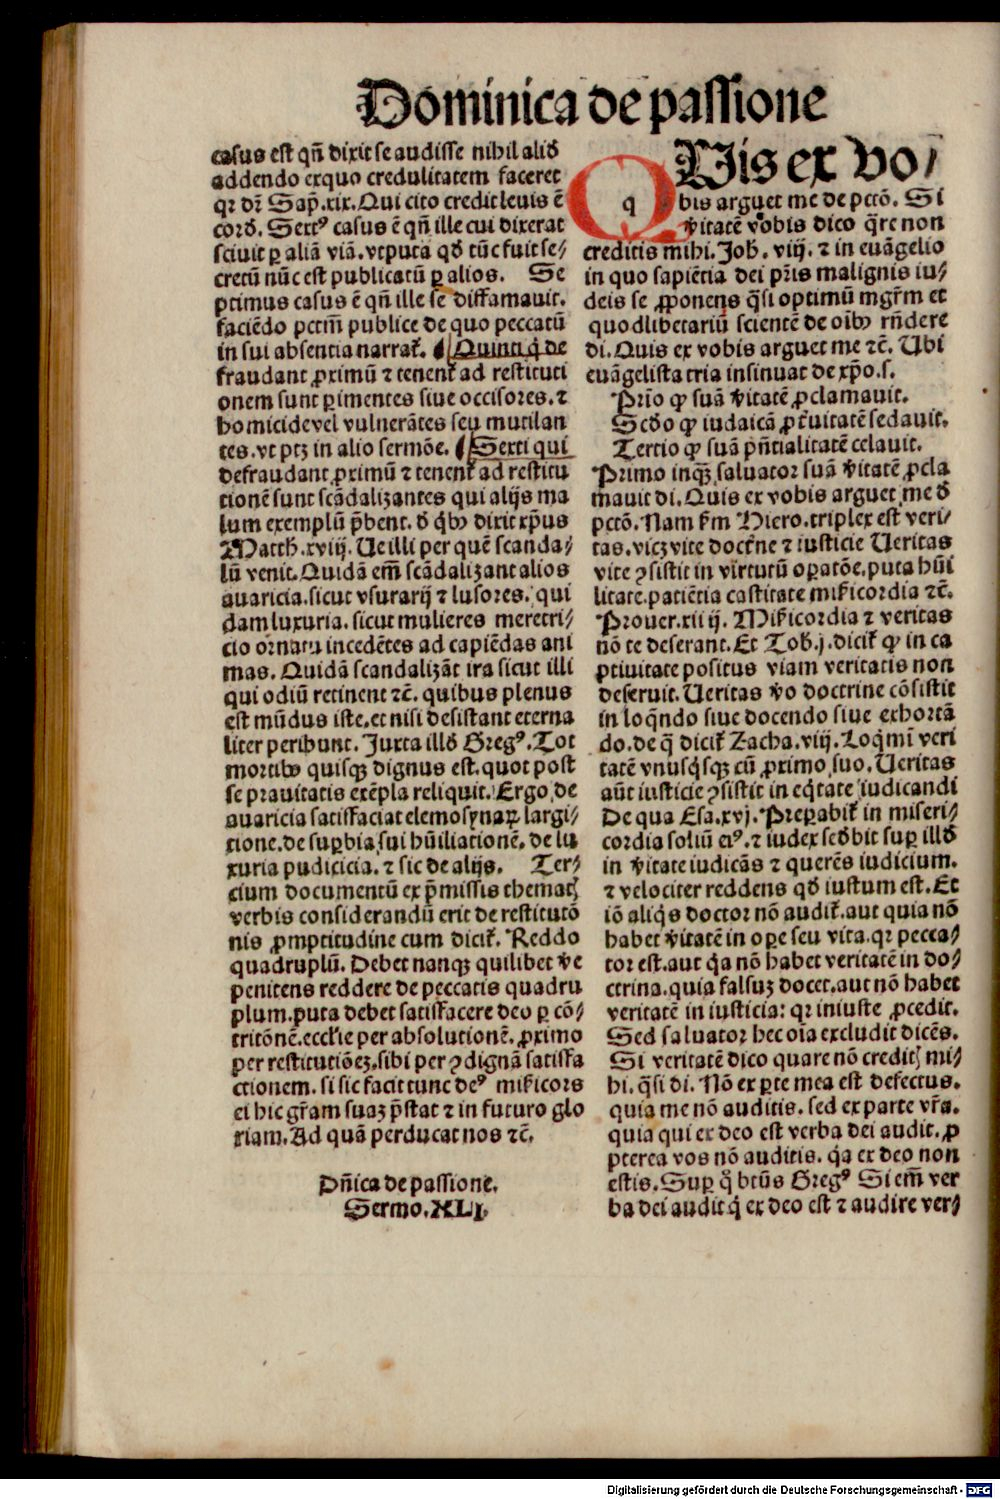 Dominica de passione
casus est qñ dixit se audisse nihil aliđ
addendo exquo credulitatem faceret
qr dr̄ Sap̄.xix.Qui cito credit leuis ē
corđ. Sextꝰ casus ē qñ ille cui dixerat
sciuit ꝑ aliā viā.vtputa qđ tūc fuit se/
cretū nūc est publicatū ꝑ alios. Se
ptimus casus ē qñ ille se diffamauit.
faciēdo pctm̄ publice de quo peccatū
in sui absentia narrat᷑. Quinti q̇ de
fraudant ꝓximū ⁊ tenent᷑ ad restituti
onem sunt ꝑimentes siue occisores.⁊
homicide vel vulnerātes seu mutilan
tes.vt ptꝫ in alio sermōe. Sexti qui
defraudant ꝓximū ⁊ tenent᷑ ad restitu
tionē sunt scādalizantes qui alijs ma
lum exemplū p̄bent. đ q̇bꝰ dixit xp̄us
Matth.xviij. Ue illi per quē scanda/
lū venit.Quidā em̄ scādalizant alios
auaricia.sicut vsurarij ⁊ lusores. qui
dam luxuria. sicut mulieres meretri/
cio ornatu incedētes ad capiēdas ani
mas. Quidā scandalizāt ira sicut illi
qui odiū retinent ⁊c̄. quibus plenus
est mūdus iste.et nisi desistant eterna
liter peribunt. Juxta illđ Gregꝰ.Tot
mortibꝰ quisqꝫ dignus est.quot post
se prauitatis exēpla reliquit. Ergo de
auaricia satisfaciat elemosynaꝝ largi/
tione.de suꝑbia sui hūiliatione. de lu
xuria pudicicia. ⁊ sic de alijs. Ter/
cium documentū ex p̄missis thematꝭ
verbis considerandū erit de restitutō
nis ꝓmptitudine cum dicit᷑. Reddo
quadruplū. Debet nanqꝫ quilibet v̄e
penitens reddere de peccatis quadru
plum.puta debet satisfacere deo ꝑ cō/
tritōnē.eccl'ie per absolutionē. ꝓximo
per restitutiōeꝫ.sibi per ꝯdignā satisfa
ctionem. si sic facit tunc deꝰ mif̄icors
ei hic gr̄am suaꝫ p̄stat ⁊ in futuro glo
riam. Ad quā perducat nos ⁊c̄.
Pn̄ica de passione.
Sermo.XLI.
QUis ex vo/
q bis arguet me de pctō. Si
v̄itatē vobis dico q̄re non
creditis mihi. Joh̄. viij. ⁊ in euāgelio
in quo sapiētia dei pr̄is malignis iu/
deis se ꝓponens q̄si optimū mgr̄m et
quodlibetariū scientē de oībꝰ rn̄dere
di. Quis ex vobis arguet me ⁊c̄. Ubi
euāgelista tria insinuat de xp̄o.s.
Prīo ꝙ suā v̄itatē ꝓclamauit.
Scđo ꝙ iudaicā ꝓt̄uitatē sedauit.
Tertio ꝙ suā p̄n̄tialitatē celauit.
Primo inqꝫ saluator suā v̄itatē ꝓcla
mauit di. Quis ex vobis arguet me đ
pctō. Nam s̄m Hiero.triplex est veri/
tas.vicꝫ vite doctr̄ne ⁊ iusticie Ueritas
vite ꝯsistit in virtutū oꝑatōe.puta hūi
litate.patiētia castitate mif̄icordia ⁊c̄.
Prouer.xiiij. Mif̄icordia ⁊ veritas
nō te deserant. Et Tob.j. dicit᷑ ꝙ in ca
ptiuitate positus viam veritatis non
deseruit. Ueritas v̄o doctrine cōsistit
in loq̄ndo siue docendo siue exhortā
do.de q̄ dicit᷑ Zacha.viij. Loq̇mī veri
tatē vnusq̇sqꝫ cū ꝓximo suo. Ueritas
aūt iusticie ꝯsistit in eq̇tate iudicandi
De qua Esa.xvj. Preꝑabit᷑ in miseri/
cordia soliū eiꝰ. ⁊ iudex seđbit suꝑ illđ
in v̄itate iudicās ⁊ querēs iudicium.
⁊ velociter reddens qđ iustum est. Et
iō aliq̇s doctor nō audit᷑.aut quia nō
habet v̄itatē in oꝑe seu vita.qr pecca/
tor est.aut q̇a nō habet veritatē in do/
ctrina.quia falsuꝫ docet.aut nō habet
veritatē in iusticia: qr iniuste ꝓcedit.
Sed saluator hec oīa excludit dicēs.
Si veritatē dico quare nō creditꝭ mi/
hi. q̄si di. Nō ex ꝑte mea est defectus.
quia me nō auditis. sed ex parte vr̄a.
quia qui ex deo est verba dei audit. ꝓ
pterea vos nō auditis. q̇a ex deo non
estis. Suꝑ q̊ btūs Gregꝰ Si em̄ ver
ba dei audit q̇ ex deo est ⁊ audire ver/
Digitalisierung gefördert durch die Deutsche Forschungsgemeinschaft - DFG